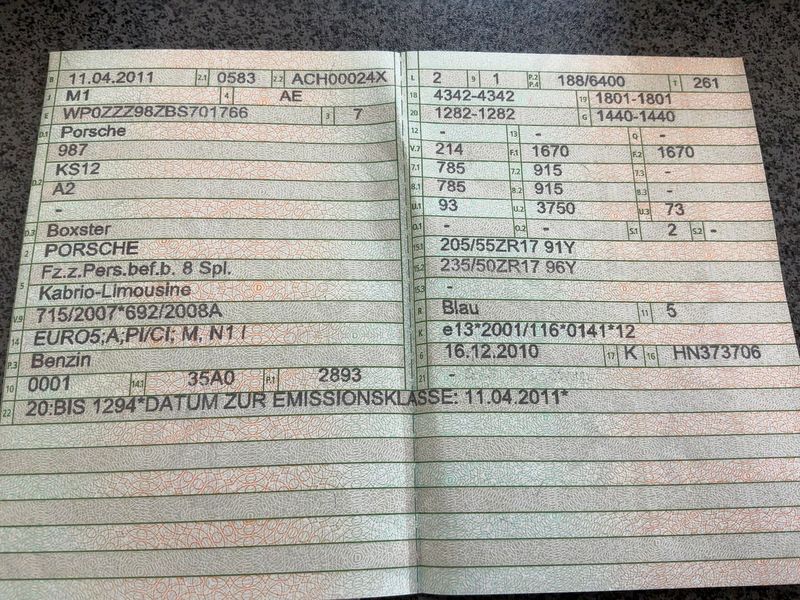 B 11.04.2011 2.1 0583 2.2 ACH00024X
J M1 4 AE
E WP0ZZZ98ZBS701766 3 7
D.1 Porsche
987
D.2 KS12
A2
-
D.3 Boxster
2 PORSCHE
5 Fz.z.Pers.bef.b. 8 Spl.
Kabrio-Limousine
V.9 715/2007*692/2008A
14 EURO5;A;PI/CI; M, N1 I
P.3 Benzin
10 0001 14.1 35A0 P.1 2893
22 20:BIS 1294*DATUM ZUR EMISSIONSKLASSE: 11.04.2011*
L 2 9 1 P.2 P.4 188/6400 T 261
18 4342-4342 19 1801-1801
20 1282-1282 G 1440-1440
12 - 13 - Q -
V.7 214 F.1 1670 F.2 1670
7.1 785 7.2 915 7.3 -
8.1 785 8.2 915 8.3 -
U.1 93 U.2 3750 U.3 73
O.1 - O.2 - S.1 2 S.2 -
15.1 205/55ZR17 91Y
15.2 235/50ZR17 96Y
15.3 -
R Blau 11 5
K e13*2001/116*0141*12
6 16.12.2010 17 K 16 HN373706
21 -